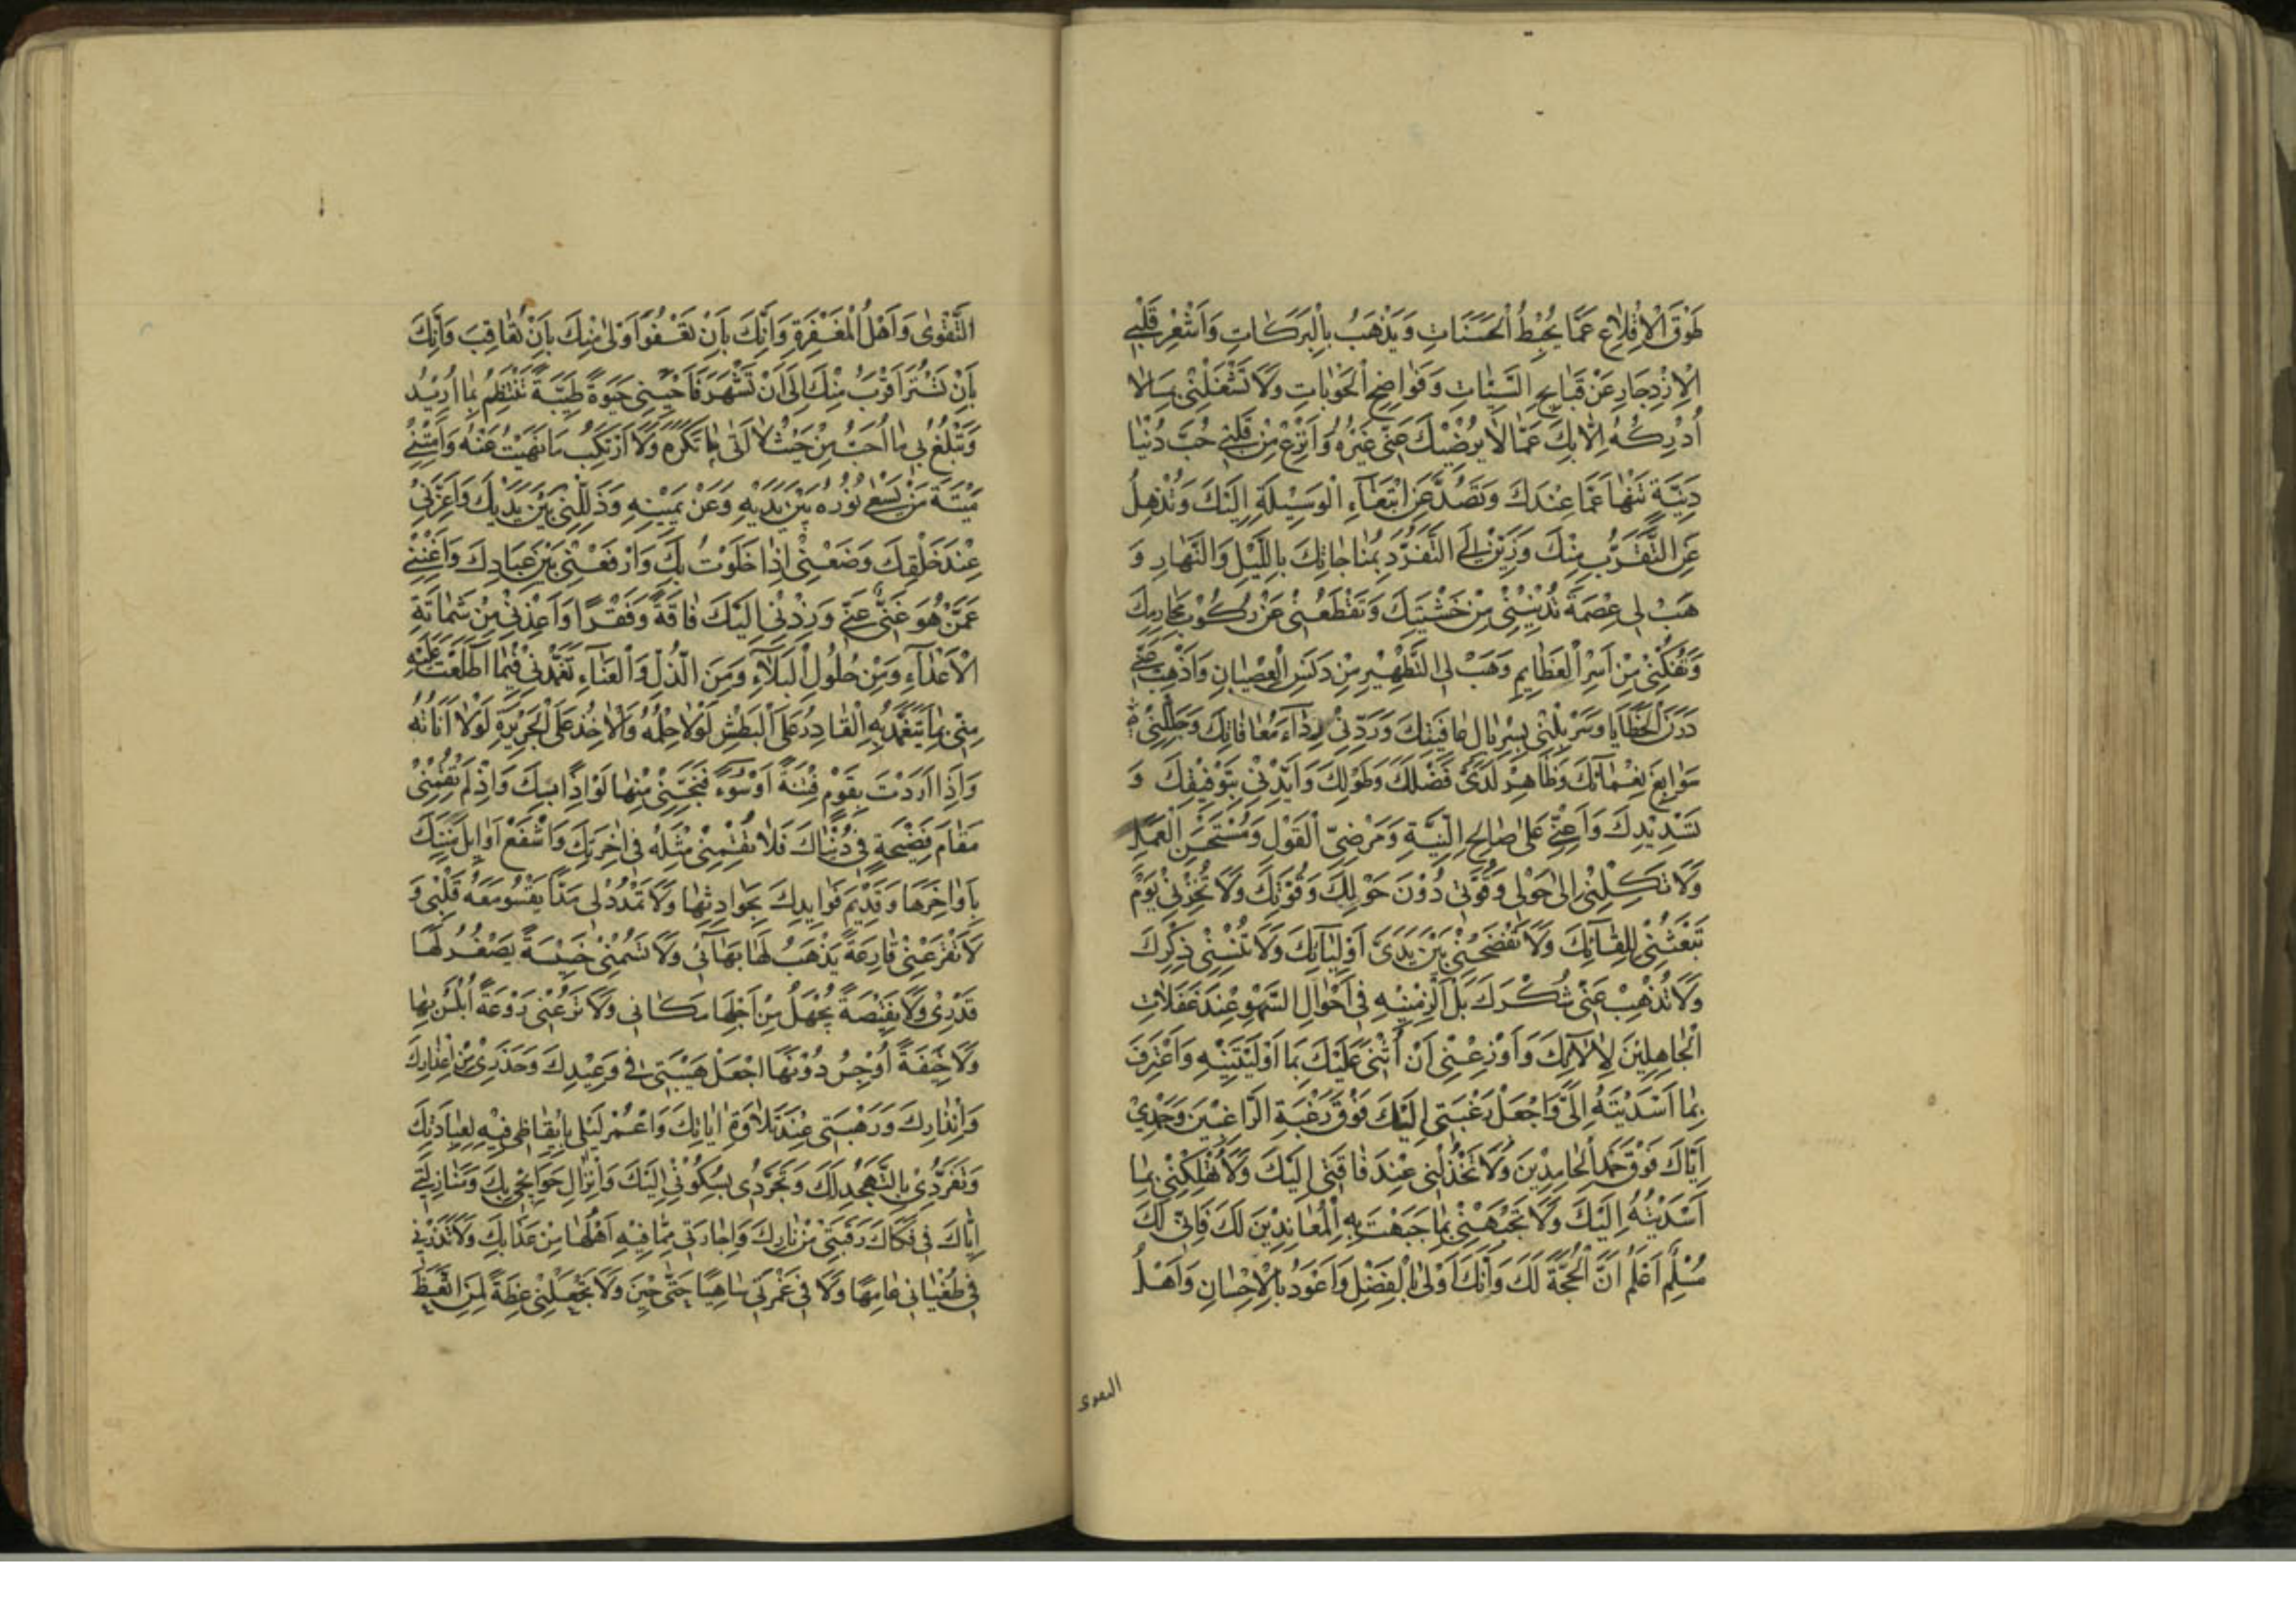 طَوْقَ الْاِقْلَاعِ عَمَّا يُحْبِطُ الْحَسَنَاتِ وَيَذْهَبُ بِالْبَرَكَاتِ وَاَشْعِرْ قَلْبِىَ
الْاِزْدِجَارِ عَنْ قَبَايِحِ السَّيِّئَاتِ وَفَوَاضِحِ الْحَوْبَاتِ وَلَا تَشْغَلْنِى بِمَا لَا
اُدْرِكُهُ اِلَّا بِكَ عَمَّا لَا يُرْضِيْكَ عَنِّى غَيْرُهُ وَانْزِعْ مِنْ قَلْبِى حُبَّ دُنْيَا
دَنِيَّةٍ تَنْهَا عَمَّا عِنْدَكَ وَتَصُدُّ عَنِ ابْتِغَاءِ الْوَسِيْلَةِ اِلَيْكَ وَتُذْهِلُ
عَنِ التَّقَرُّبِ مِنْكَ وَزَيِّنْ لِىَ التَّفَرُّدَ بِمُنَاجَاتِكَ بِاللَّيْلِ وَالنَّهَارِ وَ
هَبْ لِى عِصْمَةً تُدْنِيْنِى مِنْ خَشْيَتِكَ وَتَقْطَعُنِى عَنْ رُكُوْبِ مَحَارِمِكَ
وَتَفُكُّنِىْ مِنْ اَسْرِ الْعَظَايِمِ وَهَبْ لِى التَّطْهِيْرَ مِنْ دَنَسِ الْعِصْيَانِ وَاَذْهِبْ عَنِّى
دَرَنَ الْخَطَايَا وَسَرْبِلْنِى بِسِرْبَالِ عَافِيَتِكَ وَرَدِّنِىْ رِدَاءَ مُعَافَاتِكَ وَجَلِّلْنِىْ
سَوَابِغَ نِعْمَائِكَ وَظَاهِرْ لَدَىَّ فَضْلَكَ وَطَوْلَكَ وَاَيِّدْنِىْ بِتَوْفِيْقِكَ وَ
تَسْدِيْدِكَ وَاَعِنِّىْ عَلٰى صَالِحِ النِّيَّةِ وَمَرْضِىِّ الْقَوْلِ وَمُسْتَحْسَنِ الْعَمَلِ
وَلَا تَكِلْنِىْ اِلٰى حَوْلِى وَقُوَّتِى دُوْنَ حَوْلِكَ وَقُوَّتِكَ وَلَا تُخْزِنِىْ يَوْمَ
تَبْعَثُنِىْ لِلِقَائِكَ وَلَا تَفْضَحْنِىْ بَيْنَ يَدَىْ اَوْلِيَائِكَ وَلَا تُنْسِنِىْ ذِكْرَكَ
وَلَا تُذْهِبْ عَنِّىْ شُكْرَكَ بَلْ اَلْزِمْنِيْهِ فِى اَحْوَالِ السَّهْوِ عِنْدَ غَفَلَاتِ
الْجَاهِلِيْنَ لِاٰلَائِكَ وَاَوْزِعْنِى اَنْ اُثْنِىَ عَلَيْكَ بِمَا اَوْلَيْتَنِيْهِ وَاَعْتَرِفَ
بِمَا اَسْدَيْتَهُ اِلَىَّ وَاجْعَلْ رَغْبَتِى اِلَيْكَ فَوْقَ رَغْبَةِ الرَّاغِبِيْنَ وَحَمْدِىْ
اِيَّاكَ فَوْقَ حَمْدِ الْحَامِدِيْنَ وَلَا تَخْذُلْنِى عِنْدَ فَاقَتِى اِلَيْكَ وَلَا تُهْلِكْنِىْ بِمَا
اَسْدَيْتُهُ اِلَيْكَ وَلَا تَجْبَهْنِىْ بِمَا جَبَهْتَ بِهِ الْمُعَانِدِيْنَ لَكَ فَاِنِّى لَكَ
مُسَلِّمٌ اَعْلَمُ اَنَّ الْحُجَّةَ لَكَ وَاَنَّكَ اَوْلٰى بِالْفَضْلِ وَاَعْوَدُ بِالْاِحْسَانِ وَاَهْلُ
التقوى
التَّقْوٰى وَاَهْلُ الْمَغْفِرَةِ وَاَنَّكَ بِاَنْ تَعْفُوَ اَوْلٰى مِنْكَ بِاَنْ تُعَاقِبَ وَاَنَّكَ
بِاَنْ تَسْتُرَ اَقْرَبُ مِنْكَ اِلٰى اَنْ تَشْهَرَ فَاَحْيِنِى حَيٰوةً طَيِّبَةً تَنْتَظِمُ بِمَا اُرِيْدُ
وَتَبْلُغُ بِى مَا اُحِبُّ مِنْ حَيْثُ لَا اٰتِى مَا تَكْرَهُ وَلَا اَرْتَكِبُ مَا نَهَيْتَ عَنْهُ وَاَمِتْنِىْ
مِيْتَةَ مَنْ يَسْعٰى نُوْرُهُ بَيْنَ يَدَيْهِ وَعَنْ يَمِيْنِهِ وَذَلِّلْنِىْ بَيْنَ يَدَيْكَ وَاَعِزَّنِىْ
عِنْدَ خَلْقِكَ وَضَعْنِىْ اِذَا خَلَوْتُ بِكَ وَارْفَعْنِىْ بَيْنَ عِبَادِكَ وَاَغْنِنِىْ
عَمَّنْ هُوَ غَنِىٌّ عَنِّىْ وَزِدْنِىْ اِلَيْكَ فَاقَةً وَفَقْرًا وَاَعِذْنِىْ مِنْ شَمَاتَةِ
الْاَعْدَاءِ وَمِنْ حُلُولِ الْبَلَاءِ وَمِنَ الذُّلِّ وَالْعَنَاءِ تَغَمَّدْنِىْ فِيْمَا اطَّلَعْتَ عَلَيْهِ
مِنِّىْ بِمَا يَتَغَمَّدُ بِهِ الْقَادِرُ عَلَى الْبَطْشِ لَوْلَا حِلْمُهُ وَالْاٰخِذُ عَلَى الْجَرِيْرَةِ لَوْلَا اَنَاتُهُ
وَاِذَا اَرَدْتَ بِقَوْمٍ فِتْنَةً اَوْ سُوْءً فَنَجِّنِىْ مِنْهَا لِوَاذًا بِكَ وَاِذْ لَمْ تُقِمْنِىْ
مَقَامَ فَضِيْحَةٍ فِى دُنْيَاكَ فَلَا تُقِمْنِىْ مِثْلَهُ فِى اٰخِرَتِكَ وَاشْفَعْ اَوَايِلَ مِنَنِكَ
بِاَوَاخِرِهَا وَقَدِيْمَ فَوَايِدِكَ بِحَوَادِثِهَا وَلَا تَمْدُدْ لِى مَدًّا يَقْسُو مَعَهُ قَلْبِىْ وَ
لَا تَقْرَعْنِىْ قَارِعَةً يَذْهَبُ لَهَا بَهَائِى وَلَا تَسُمْنِىْ خَسِيْسَةً يَصْغُرُ لَهَا
قَدْرِىْ وَلَا نَقِيْصَةً يُجْهَلُ مِنْ اَجْلِهَا مَكَانِى وَلَا تَرُعْنِى رَوْعَةً اُبْلِسُ بِهَا
وَلَا خِيْفَةً اُوْجِسُ دُوْنَهَا اجْعَلْ هَيْبَتِى فِى وَعِيْدِكَ وَحَذَرِىْ مِنْ اِعْذَارِكَ
وَاِنْذَارِكَ وَرَهْبَتِى عِنْدَ تِلَاوَةِ اٰيَاتِكَ وَاعْمُرْ لَيْلِى بِاِيْقَاظِى فِيْهِ لِعِبَادَتِكَ
وَتَفَرُّدِىْ بِالتَّهَجُّدِ لَكَ وَتَجَرُّدِى بِسُكُوْنِىْ اِلَيْكَ وَاِنْزَالِ حَوَايِجِى بِكَ وَمُنَازَلَتِى
اِيَّاكَ فِى فَكَاكِ رَقَبَتِى مِنْ نَارِكَ وَاِجَارَتِى مِمَّا فِيْهِ اَهْلُهَا مِنْ عَذَابِكَ وَلَا تَذَرْنِى
فِى طُغْيَانِى عَامِهًا وَلَا فِى غَمْرَتِى سَاهِيًا حَتّٰى حِيْنَ وَلَا تَجْعَلْنِىْ عِظَةً لِمَنِ اتَّعَظَ